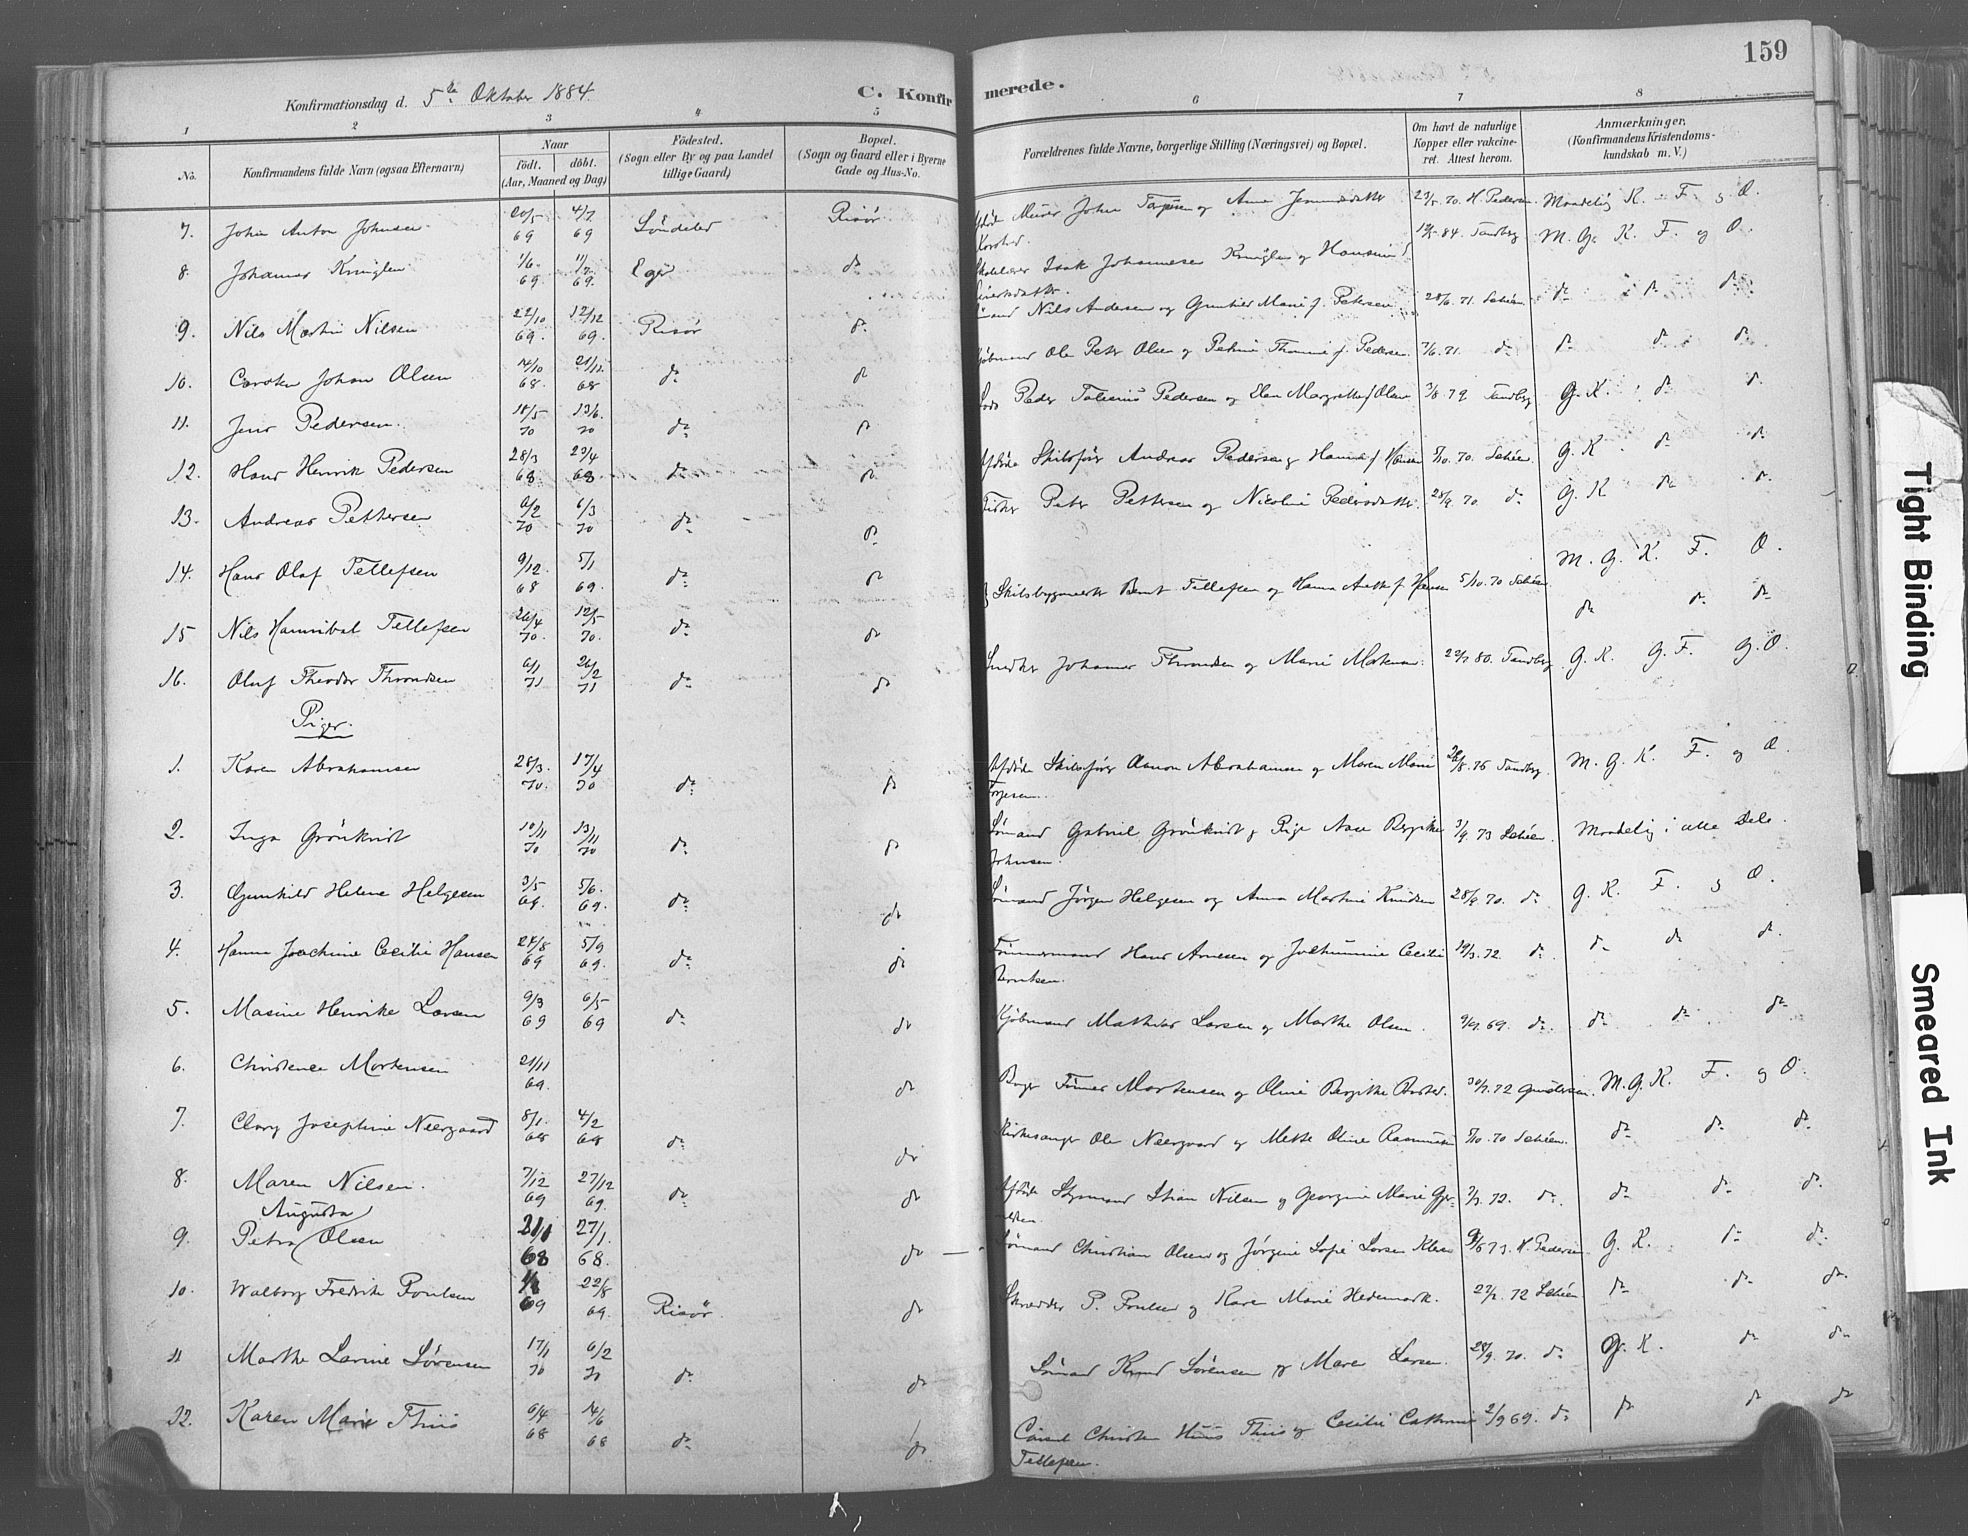 159
Konfirmationsdag d. 5te Oktober 1884.
C. Konfir
merede.
1 2 3 4 5 6 7 8
No.
Konfirmandens fulde Navn (ogsaa Efternavn)
Naar
født. døbt.
(Aar, Maaned og Dag)
Födested.
(Sogn eller By og paa Landet
tillige Gaard)
Bopæl.
(Sogn og Gaard eller i Byerne
Gade og Hus-No.
Forældrenes fulde Navne, borgerlige Stilling (Næringsvei) og Bopæl.
Om havt de naturlige
Kopper eller vakcine-
ret. Attest herom.
Anmærkninger.
(Konfirmandens Kristendoms-
kundskab m. V.)
7. Johan Anton Johnsen 20/5 69 4/7 69 Søndeled Risør Murer Johan og Anna 70. H. Pedersen Maadelig K. F. og O.
8. Johannes Kringlen 1/6 69. 69. Eger do Isak Johannesen Kringlen og 84. Tandberg M. G. K. F. og O.
9. Nils Martin Nilsen 22/10 69. 12/12 69. Risør do Nils Andersen og Gunhild Marie f. Petersen 28/6. 71. Schéen do do do
10. Carsten Johan Olsen 14/10 68. 21/12 68 do do Ole Peter Olsen og Petrine f. Pedersen 7/6. 71. do do do do
11. Jens Pedersen. 18/5 70 13/6. 70 do do Lods Peder Pedersen og Elen Margrethe f Olsen 3/8 79 Tandberg G. K. do do
12. Hans Henrik Pedersen 28/3 68 23/4 68 do do Afdøde Skibsfører Andreas Pedersen og Hanna f Hansen 70. Schéen. G. K do do
13. Andreas Pettersen 9/2 70 6/3 70 do do Fisker Peter Pettersen og Nicoline Pedersdatter. 28/9. 70 do G. K do do
14. Hans Olaf Tellefsen 9/12. 68 5/1 69. do do Skibsbygmester Bernt Tellefsen og Hanna f. Hansen 5/10. 70 Schéen M. G. K. F. O.
15 Nils Hannibal Tellefsen 26/4 70. 12/5 70. do do do do do
16. Oluf Theodor Throndsen 6/1 71 26/2 71 do do Snedker Johannes Throndsen og Marie 80. Tandberg G. K. G. F. G. O.
Piger.
1. Karen Abrahamsen 28/3. 70. 17/4 70 do do Afdøde Skibsfører Aanon Abrahamsen og Maren Marie 26/8. 75 Tandberg. M. G. K. F. og O.
2. Inga Grönkvist 10/11 70 13/11 70 do do Sømand Gabriel Grönkvist og Pige Aase Bergitte 3/9. 73 Schéen. Maadelig i alle Dele.
Johnsen.
3. Gunhild Helene Helgesen 3/5 69. 5/6. 69. do do Sømand Jørgen Helgesen og Anna Martine Knudsen 28/9 70. do G. K. F. og O.
4. Hanna Joachine Cecilie Hansen 27/8 69 5/9 69. do do Tømmermand Hans Arnesen og Cecilie 19/3. 72 do do do do
Berntsen.
5. Masine Henrike Larsen 9/3 69 6/5 69 do do Kjøbmand Mathias Larsen og Marthe Olsen. 9/9. 69. do do do do
6. Christence Mortensen 21/11 69. do Bager Tønnes Mortensen og Oline Bergitte 72 Gundersen. M. G. K. F. og O.
7. Clary Josephine Neergaard 8/1. 68 4/2 68 do do Kirkesanger Ole Neergaard og Mette Oline Rasmussen 70 Schéen. do do do
8. Maren Nilsen. 7/12 69 27/12 69. do do Afdøde Styrmand Stian Nilsen og Georgine Marie 72. do do do do
9. Petra Augusta Olsen 21/1 68 27/1. 68. do Sømand Christian Olsen og Jørgine Sofie Larsen 73. H. Pedersen G. K. do do
10. Walborg Fredrike Poulsen 69 22/8 69. Risør. do Skrædder P. Poulsen og Karen Marie Hedemark. 72 Schéen do do do
11 Marthe Lavine Sørensen 17/1 70 6/2 70 do do Sømand Knud Sørensen og Maren Larsen. 28/9. 70. do G. K. do do
12. Karen Marie Thiis 6/4 68 14/6 68 do do Christen Huus Thiis og Cecilie Cathrine 2/9 69. do do do do
Tellefsen.
Tight Binding
Smeared Ink